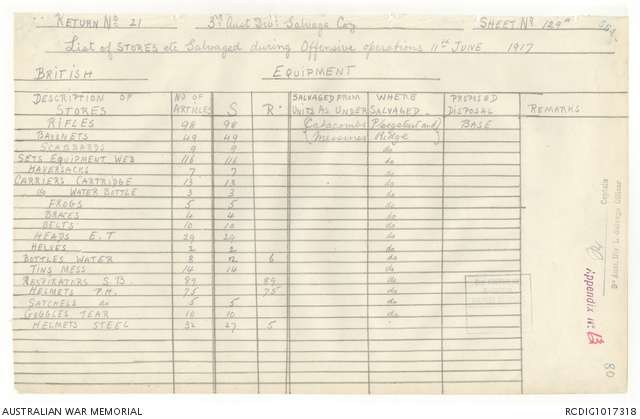 RETURN No 21 3rd Aust Divl Salvage Coy SHEET No 129A
List of STORES etc Salvaged during Offensive operations 11th JUNE 1917
BRITISH EQUIPMENT
DESCRIPTION OF STORES NO OF ARTICLES S R. SALVAGED FROM UNITS AS UNDER WHERE SALVAGED. PROPOSED DISPOSAL REMARKS
RIFLES 98 98 Catacombs Ploegsteert and BASE
BAYONETS 49 49 Messines Ridge
SCABBARDS 9 9 do
SETS EQUIPMENT WEB 116 116 do
HAVERSACKS 7 7 do
CARRIERS CARTRIDGE 13 13 do
do WATER BOTTLE 3 3 do
FROGS 5 5 do
BRACES 4 4 do
BELTS 10 10 do
HEADS E.T 29 29 do
HELVES 2 2 do
BOTTLES WATER 8 6 do
TINS MESS 14 14 do
RESPIRATORS S.B. 89 89 do
HELMETS P.H. 75 75 do
SATCHELS do 5 5 do
GOGGLES TEAR 10 10 do
HELMETS STEEL 32 27 5
Captain
3rd Aust. Div. L. Salvage Officer
Appendix No. 13
80
AUSTRALIAN WAR MEMORIAL RCDIG1017318